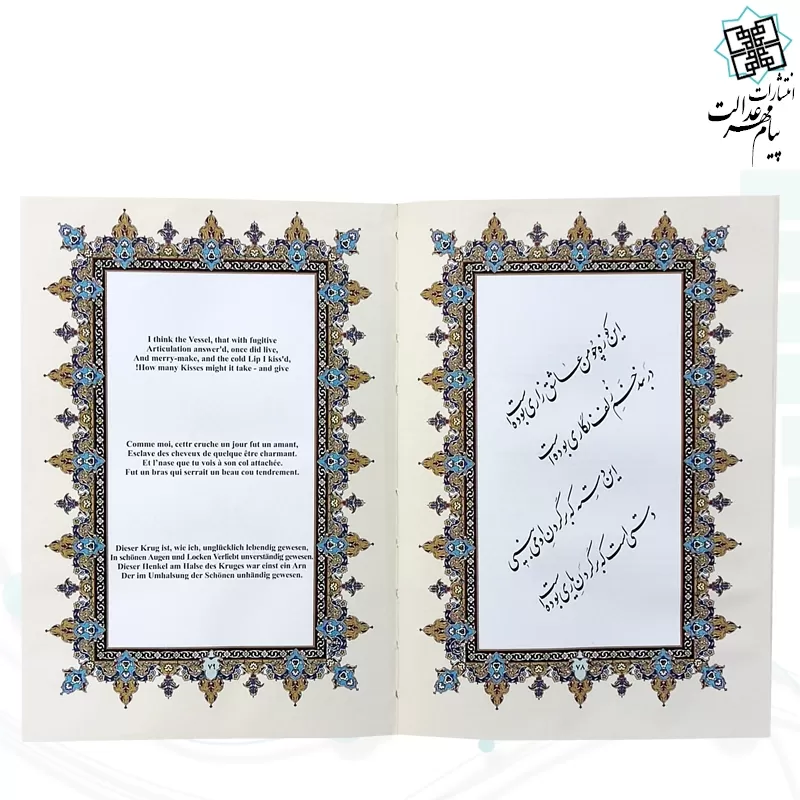 انتشارات
پیام مهر عدالت
I think the Vessel, that with fugitive
Articulation answer'd, once did live,
And merry-make, and the cold Lip I kiss'd,
!How many Kisses might it take - and give
Comme moi, cettr cruche un jour fut un amant,
Esclave des cheveux de quelque être charmant.
Et l'nase que tu vois à son col attachée.
Fut un bras qui serrait un beau cou tendrement.
Dieser Krug ist, wie ich, unglücklich lebendig gewesen,
In schönen Augen und Locken Verliebt unverständig gewesen.
Dieser Henkel am Halse des Kruges war einst ein Arn
Der im Umhalsung der Schönen unhändig gewesen.
۷۹
این کوزه چو من عاشق زاری بوده‌است
در بند خم زلف نگاری بوده‌است
این دسته که بر گردن او می‌بینی
دستی است که بر گردن یاری بوده‌است
۷۸